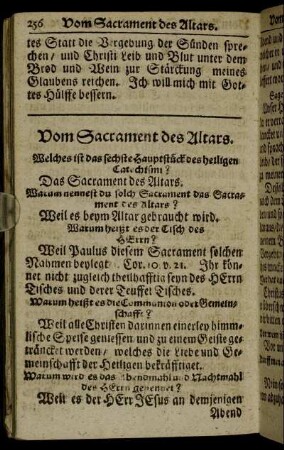 256 Vom Sacrament des Altars.
tes Statt die Vergebung der Sünden spre-
chen/ und Christi Leib und Blut unter dem
Brod und Wein zur Stärckung meines
Glaubens reichen. Ich will mich mit Got-
tes Hülffe bessern.
Vom Sacrament des Altars.
Welches ist das sechste Hauptstück des heiligen
Catechismi?
Das Sacrament des Altars.
Warum nennest du solch Sacrament das Sacra-
ment des Altars?
Weil es beym Altar gebraucht wird.
Warum heißt es der Tisch des
HErrn?
Weil Paulus diesem Sacrament solchen
Nahmen beylegt 1. Cor. 10. v. 21. Ihr kön-
net nicht zugleich theilhafftig seyn des HErrn
Tisches und derer Teuffel Tisches.
Warum heißt es die Communion oder Gemein-
schafft?
Weil alle Christen darinnen einerley himm-
lische Speise geniessen und zu einem Geiste ge-
träncket werden/ welches die Liebe und Ge-
meinschafft der Heiligen bekräfftiget.
Warum wird es das Abendmahl und Nachtmahl
des HErrn genennet?
Weil es der HErr JEsus an demjenigen
Abend